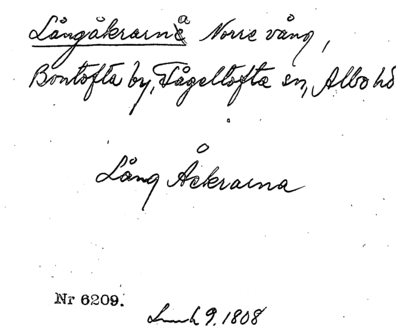 Långåkrarna Norre vång,
Bontofta by, Fågeltofta sn, Albo hd
Lång Åckrarna
Nr 6209.
9. 1808